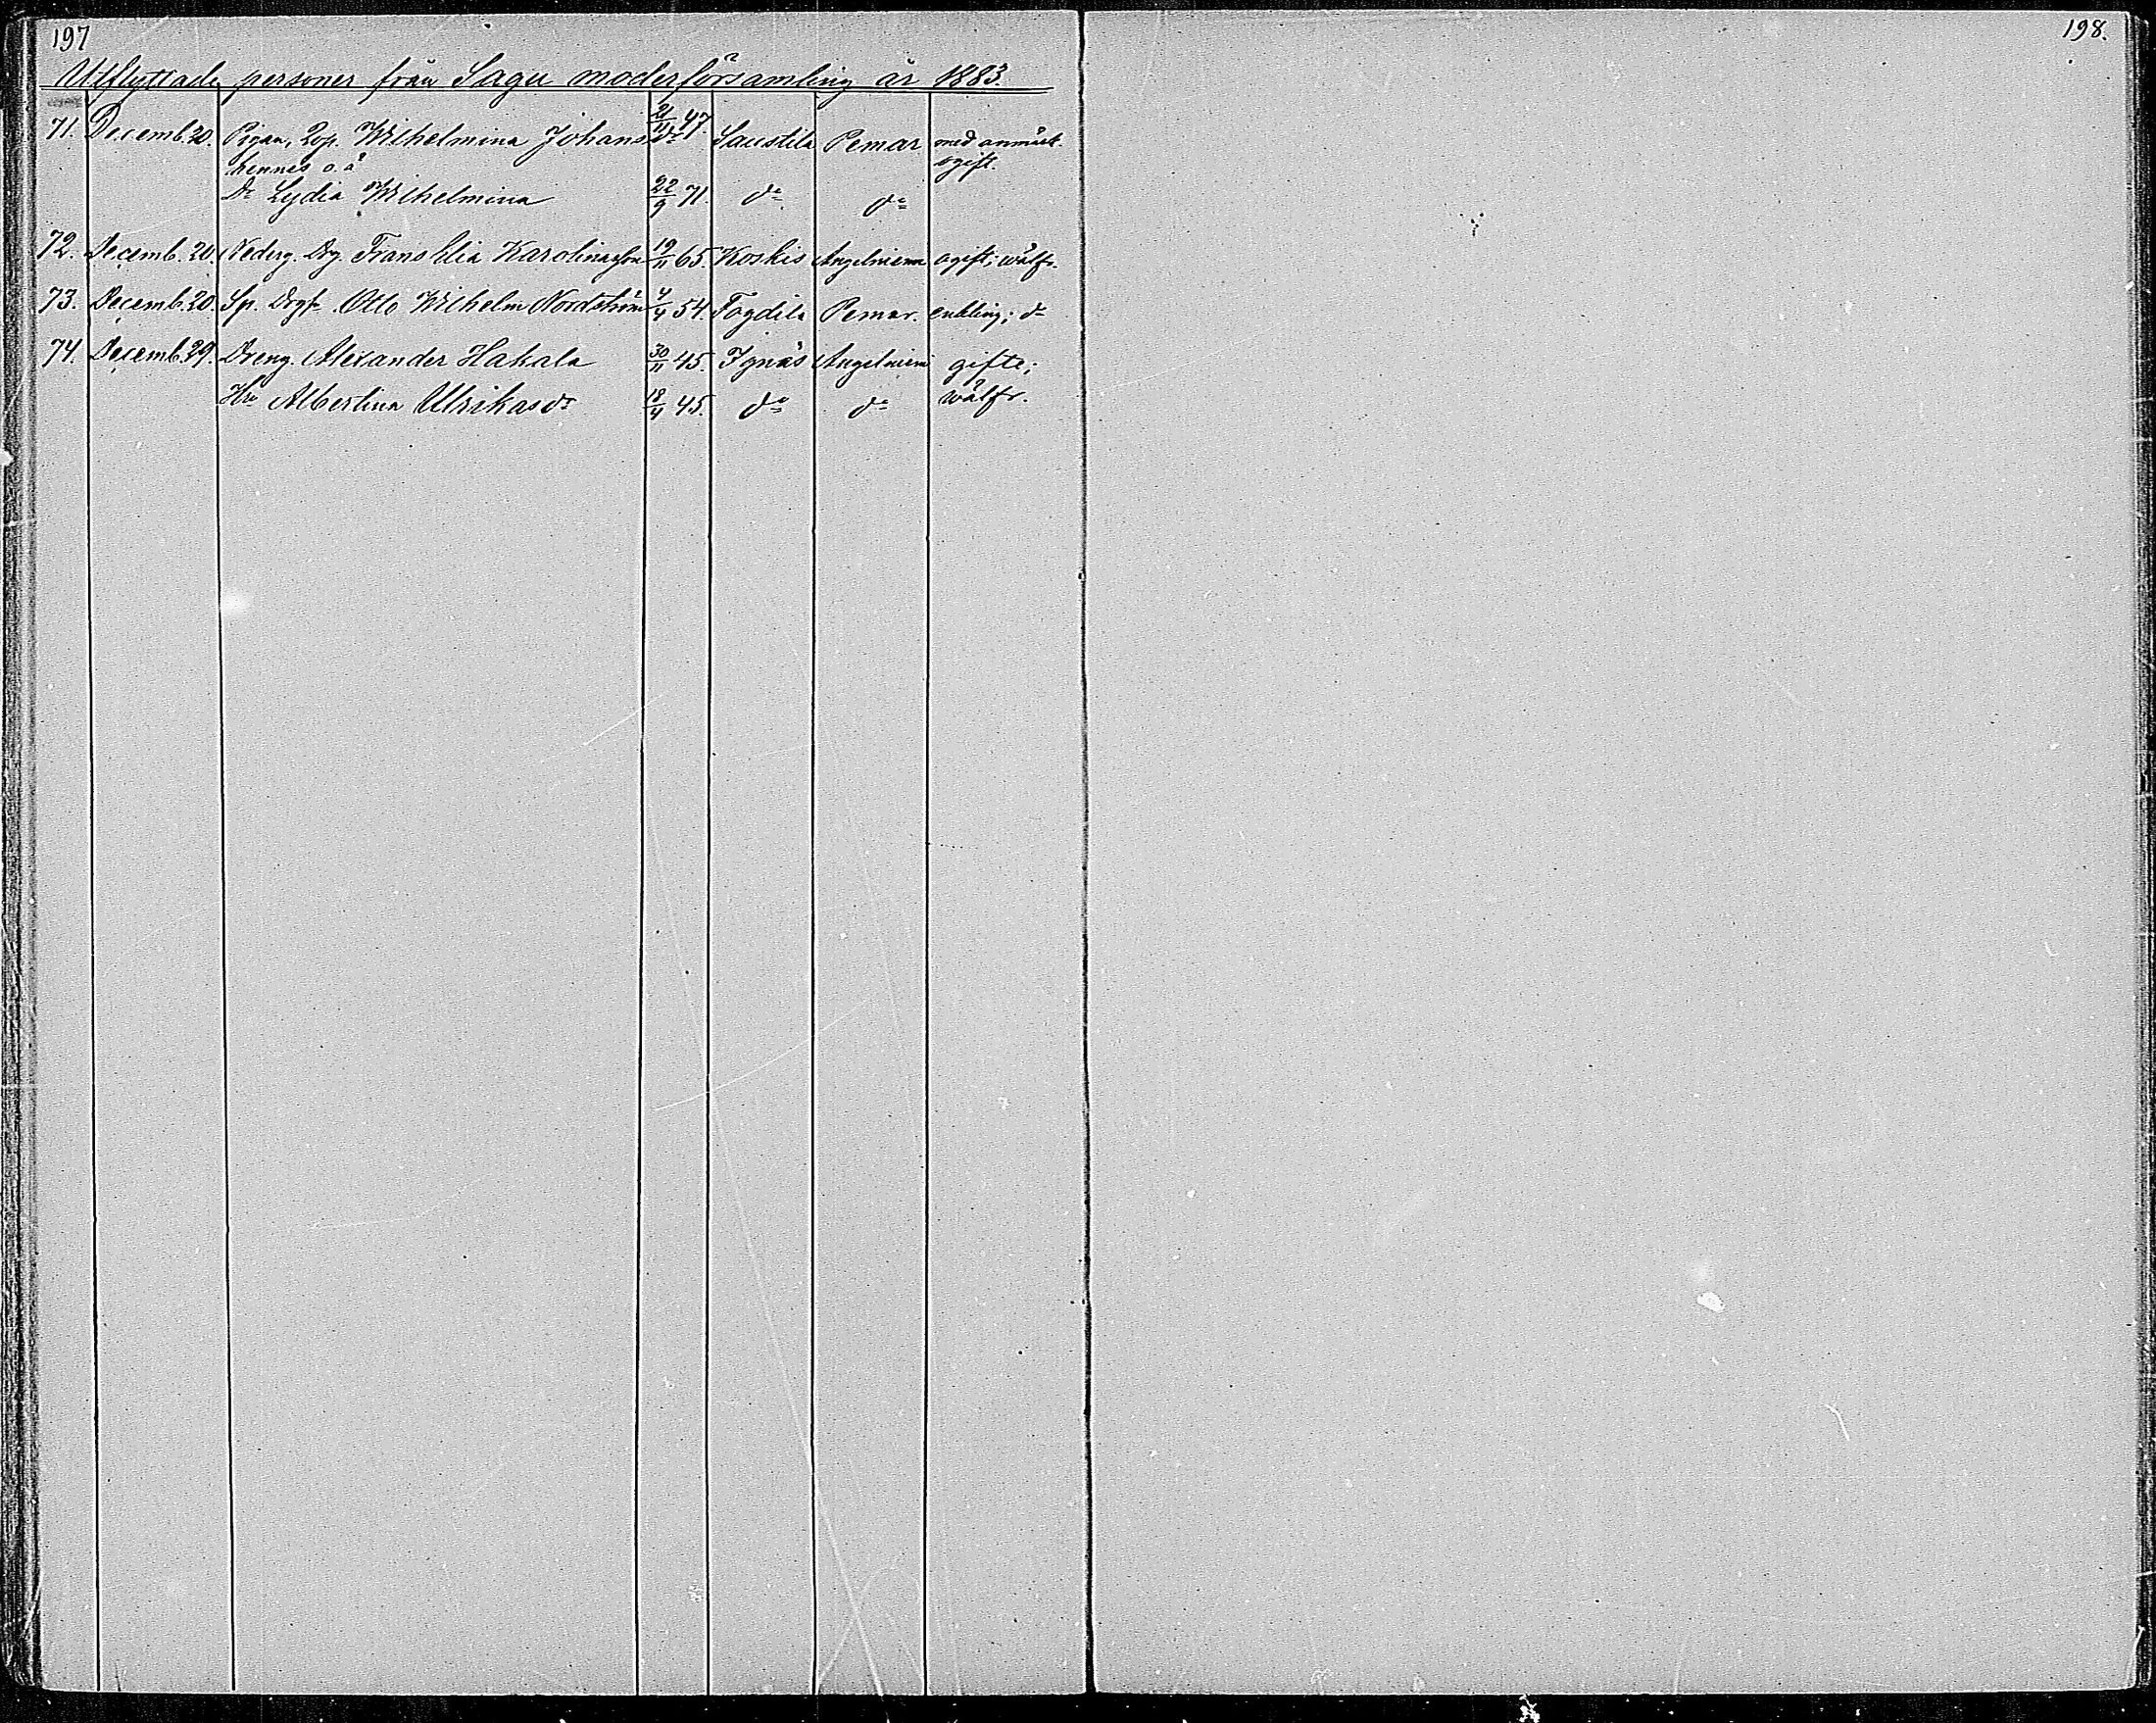 197
198.
Utflyttade personer från Sagu moderförsamling år 1883.
71. Decemb. 20. Pigan, Wilhelmina Johansdr 21/11 47. Saustila Pemar med anmärk. ogift.
hennes o. ä
Dr Lydia Wilhelmina 22/9 71. do do
72. Decemb. 20. Frans Elia Karolinason 19/11 65. Koskis Angelniemi ogift; wälfr.
73. Decemb. 20. Sp. Otto Wilhelm Nordström 4/4 54. Fogdila Pemar. enkling; do
74. Decemb. 29. Dreng. Alexander Hakala 30/11 45. Ignäs Angelniemi gifte;
Hu Albertina Ulrikasdr 18/4 45. do do wälfr.